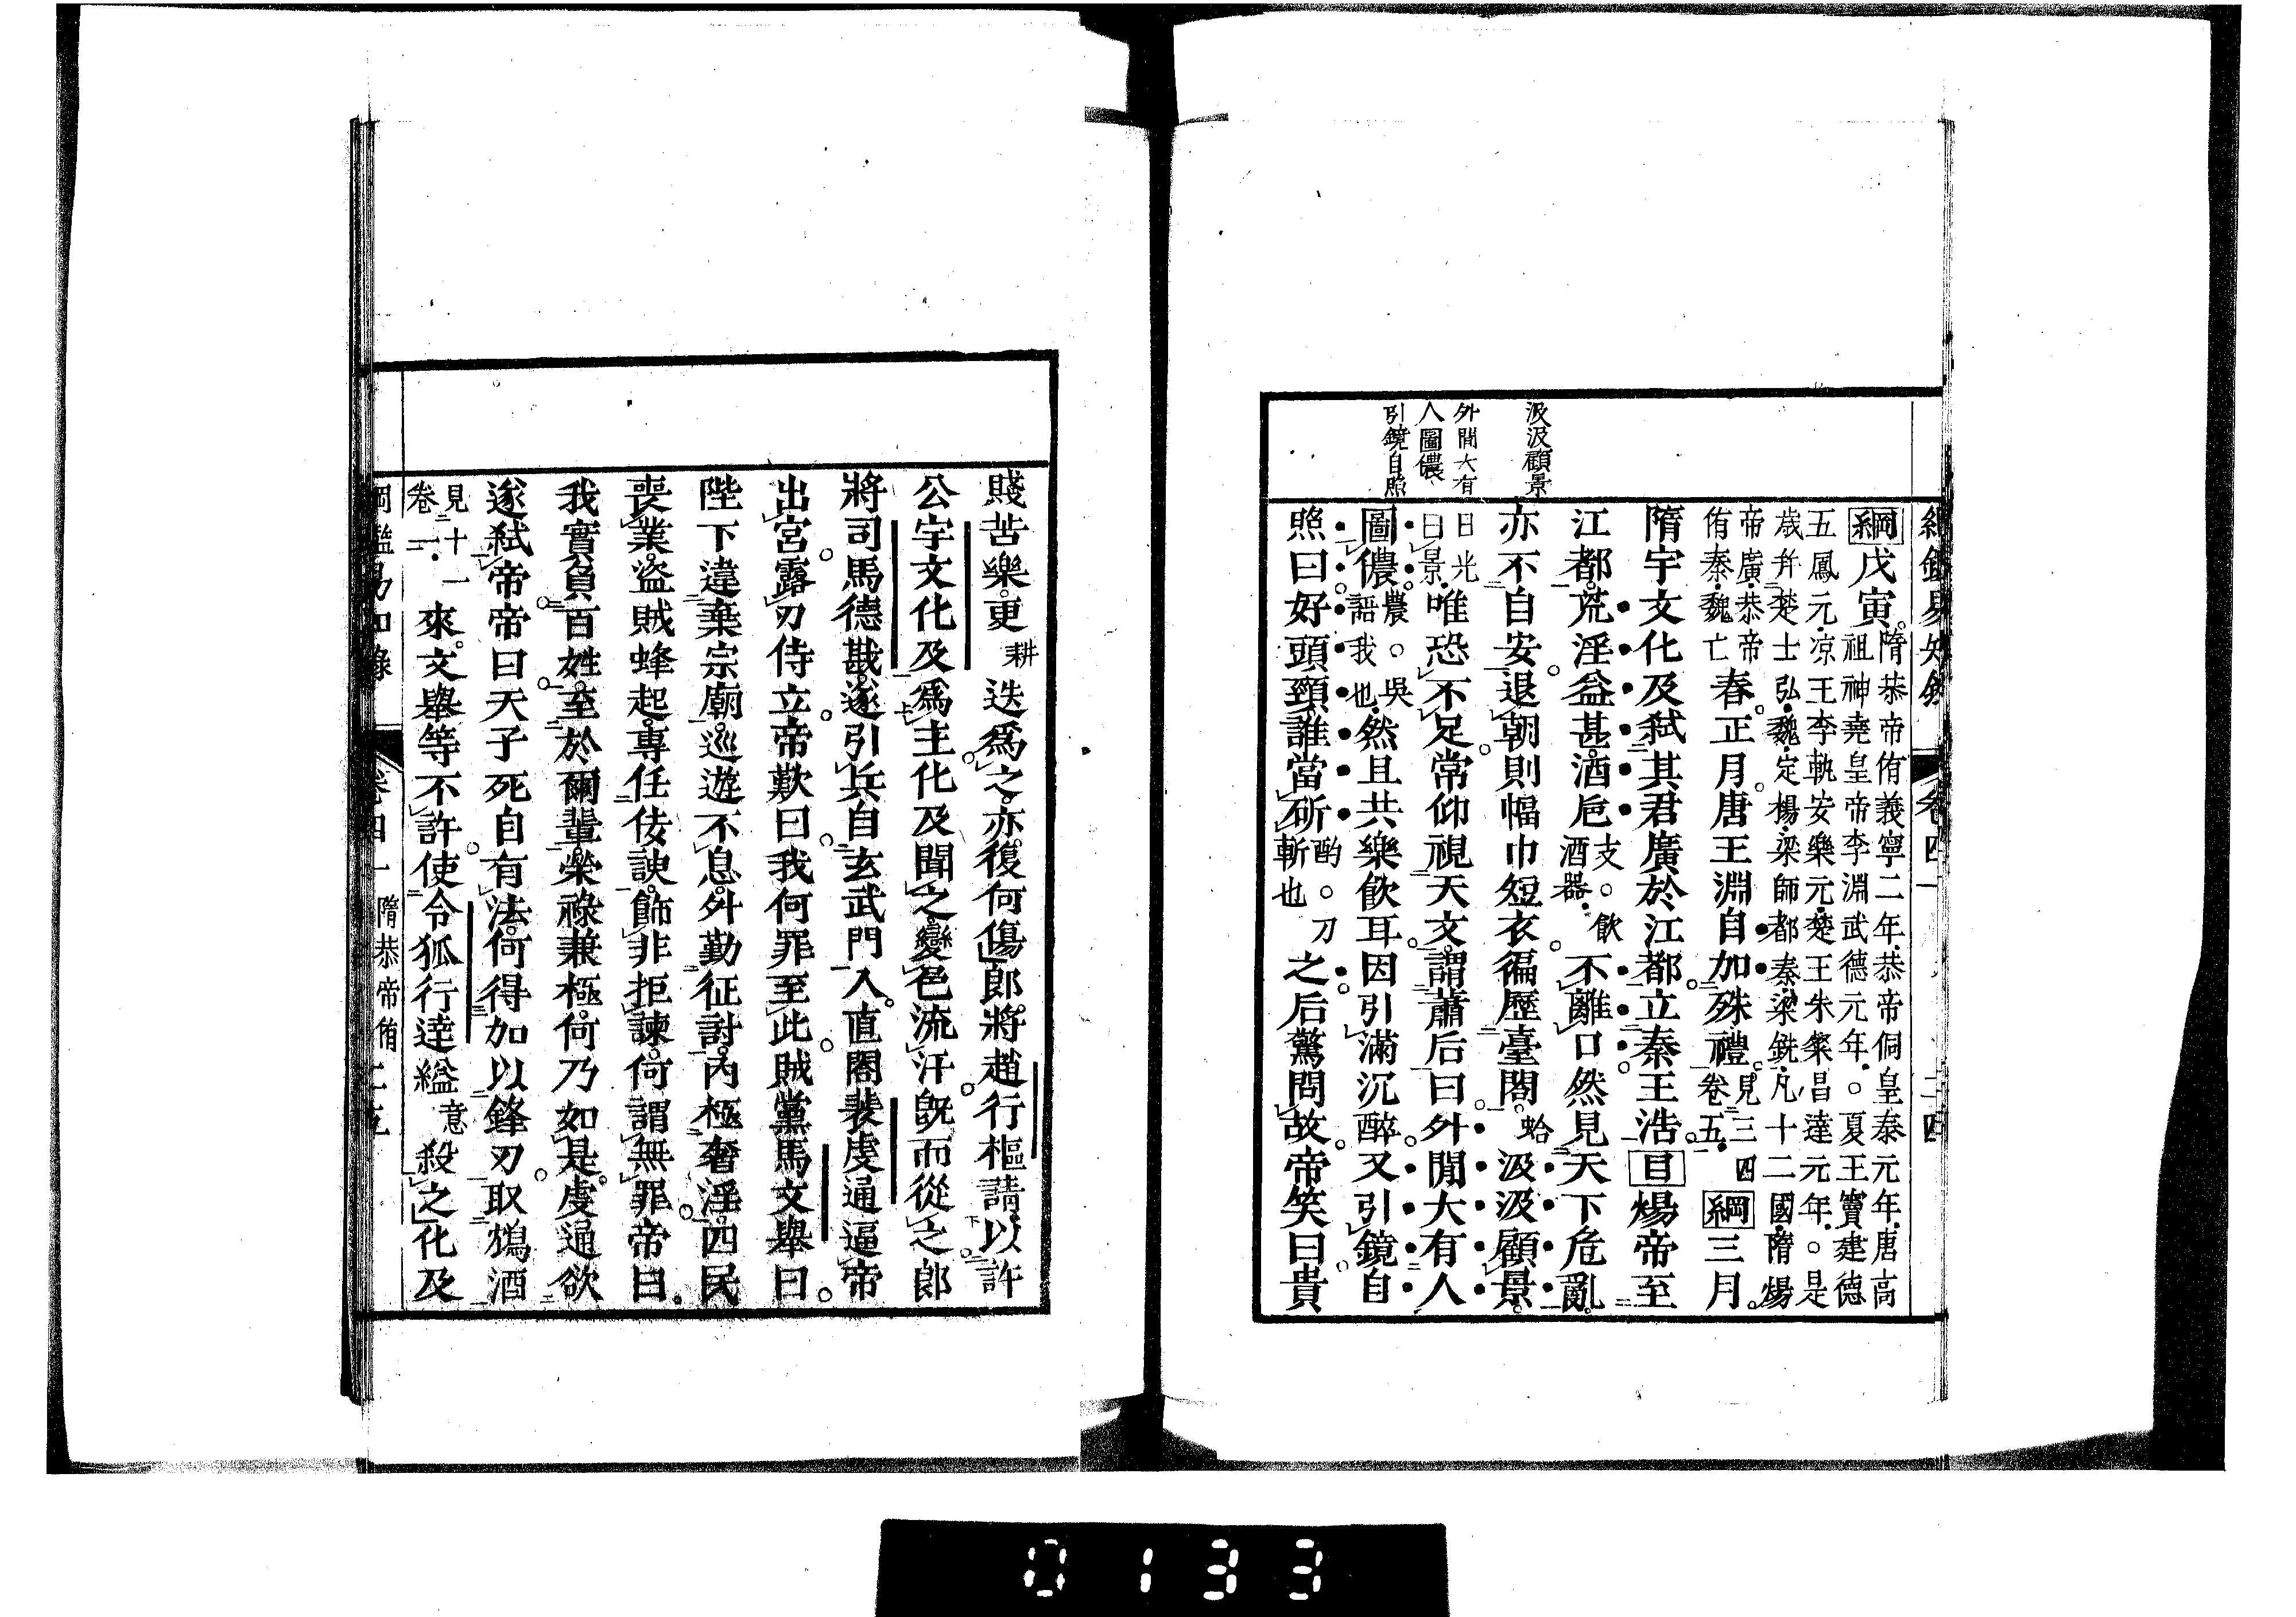 綱鑑易知錄 卷四一 二四
綱戊寅隋恭帝侑義寧二年恭帝侗皇泰元年唐高
祖神堯皇帝李淵武德元年○夏王竇建德
五鳳元涼王李軌安樂元楚王朱粲昌達元年○是
歲幷楚士弘魏定楊梁師都秦梁銑凡十二國隋煬
帝廣恭帝
侑秦魏亡春正月唐王淵自加殊禮見三四
卷五綱三月
隋宇文化及弑其君廣於江都立秦王浩目煬帝至
江都荒淫益甚酒巵支○飲
酒器不離口然見天下危亂
亦不自安退朝則幅巾短衣徧歷臺閣蛤汲汲顧景
日光
曰景唯恐不足常仰視天文謂蕭后曰外閒大有人
圖儂農○吳
語我也然且共樂飮耳因引滿沉醉又引鏡自
照曰好頭頸誰當斫酌○刀
斬也之后驚問故帝笑曰貴
汲汲顧景
外間大有
人圖儂
引鏡自照
賤苦樂更耕迭爲之亦復何傷郎將趙行樞請以許
公宇文化及爲主化及聞之變色流汗旣而從之郎
將司馬德戡遂引兵自玄武門入直閣裴虔通逼帝
出宮露刃侍立帝歎曰我何罪至此賊黨馬文舉曰
陛下違棄宗廟巡遊不息外勤征討內極奢淫四民
喪業盜賊蜂起專任佞諛飾非拒諫何謂無罪帝曰
我實負百姓至於爾輩榮祿兼極何乃如是虔通欲
遂弑帝帝曰天子死自有法何得加以鋒刃取鴆酒
見十一
卷二來文舉等不許使令狐行達縊意殺之化及
綱鑑易知錄 卷四一 隋恭帝侑 二五
0133